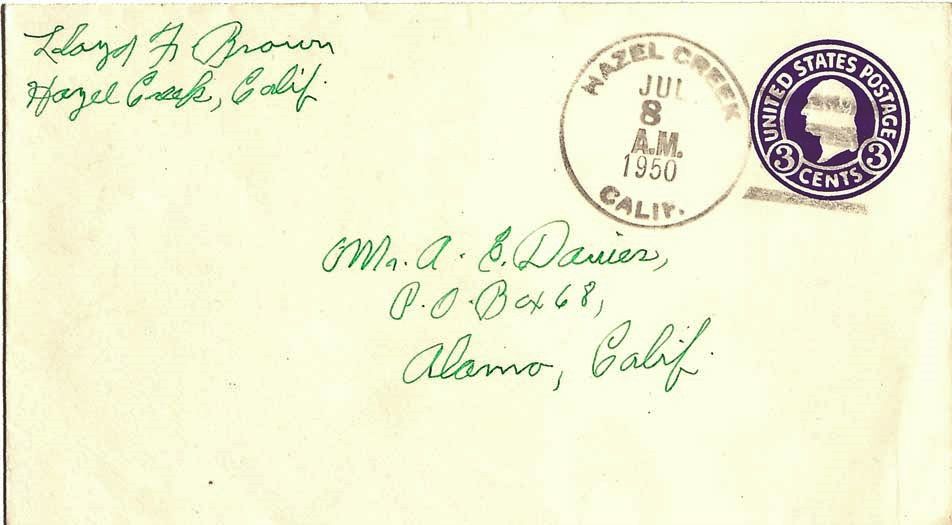 Lloyd F. Brown
Hazel Creek, Calif.
HAZEL CREEK
JUL
8
A.M.
1950
CALIF.
UNITED STATES POSTAGE
3 CENTS 3
Mr. A. E. Davies,
P.O. Box 68,
Alamo, Calif.